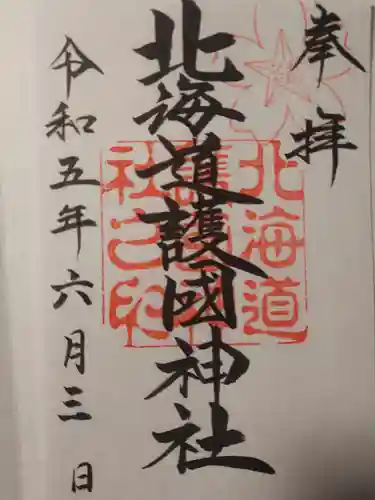 奉拝
北海道護國神社
令和五年六月三日
北海道護國神社之印